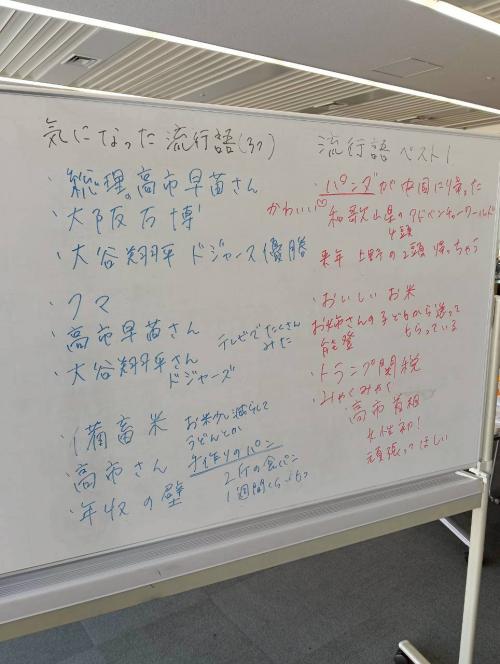 気になった流行語(3つ)
・総理。高市早苗さん
・大阪万博
・大谷翔平 ドジャース優勝
・クマ
・高市早苗さん
・大谷翔平さん
ドジャーズ
テレビでたくさん
みた
・備畜米
お米少し減らして
うどんとか
・高市さん
手作りのパン
2斤の食パン
・年収の壁
1週間くらいもつ
流行語 ベスト1
・パンダが中国に帰った
かわいい♡
和歌山県のアドベンチャーワールド
4頭
来年 上野の2頭 帰っちゃう
・おいしいお米
お姉さんの子どもから送って
もらっている
能登
・トランプ関税
・みゃくみゃく
高市首相
女性初!
頑張ってほしい